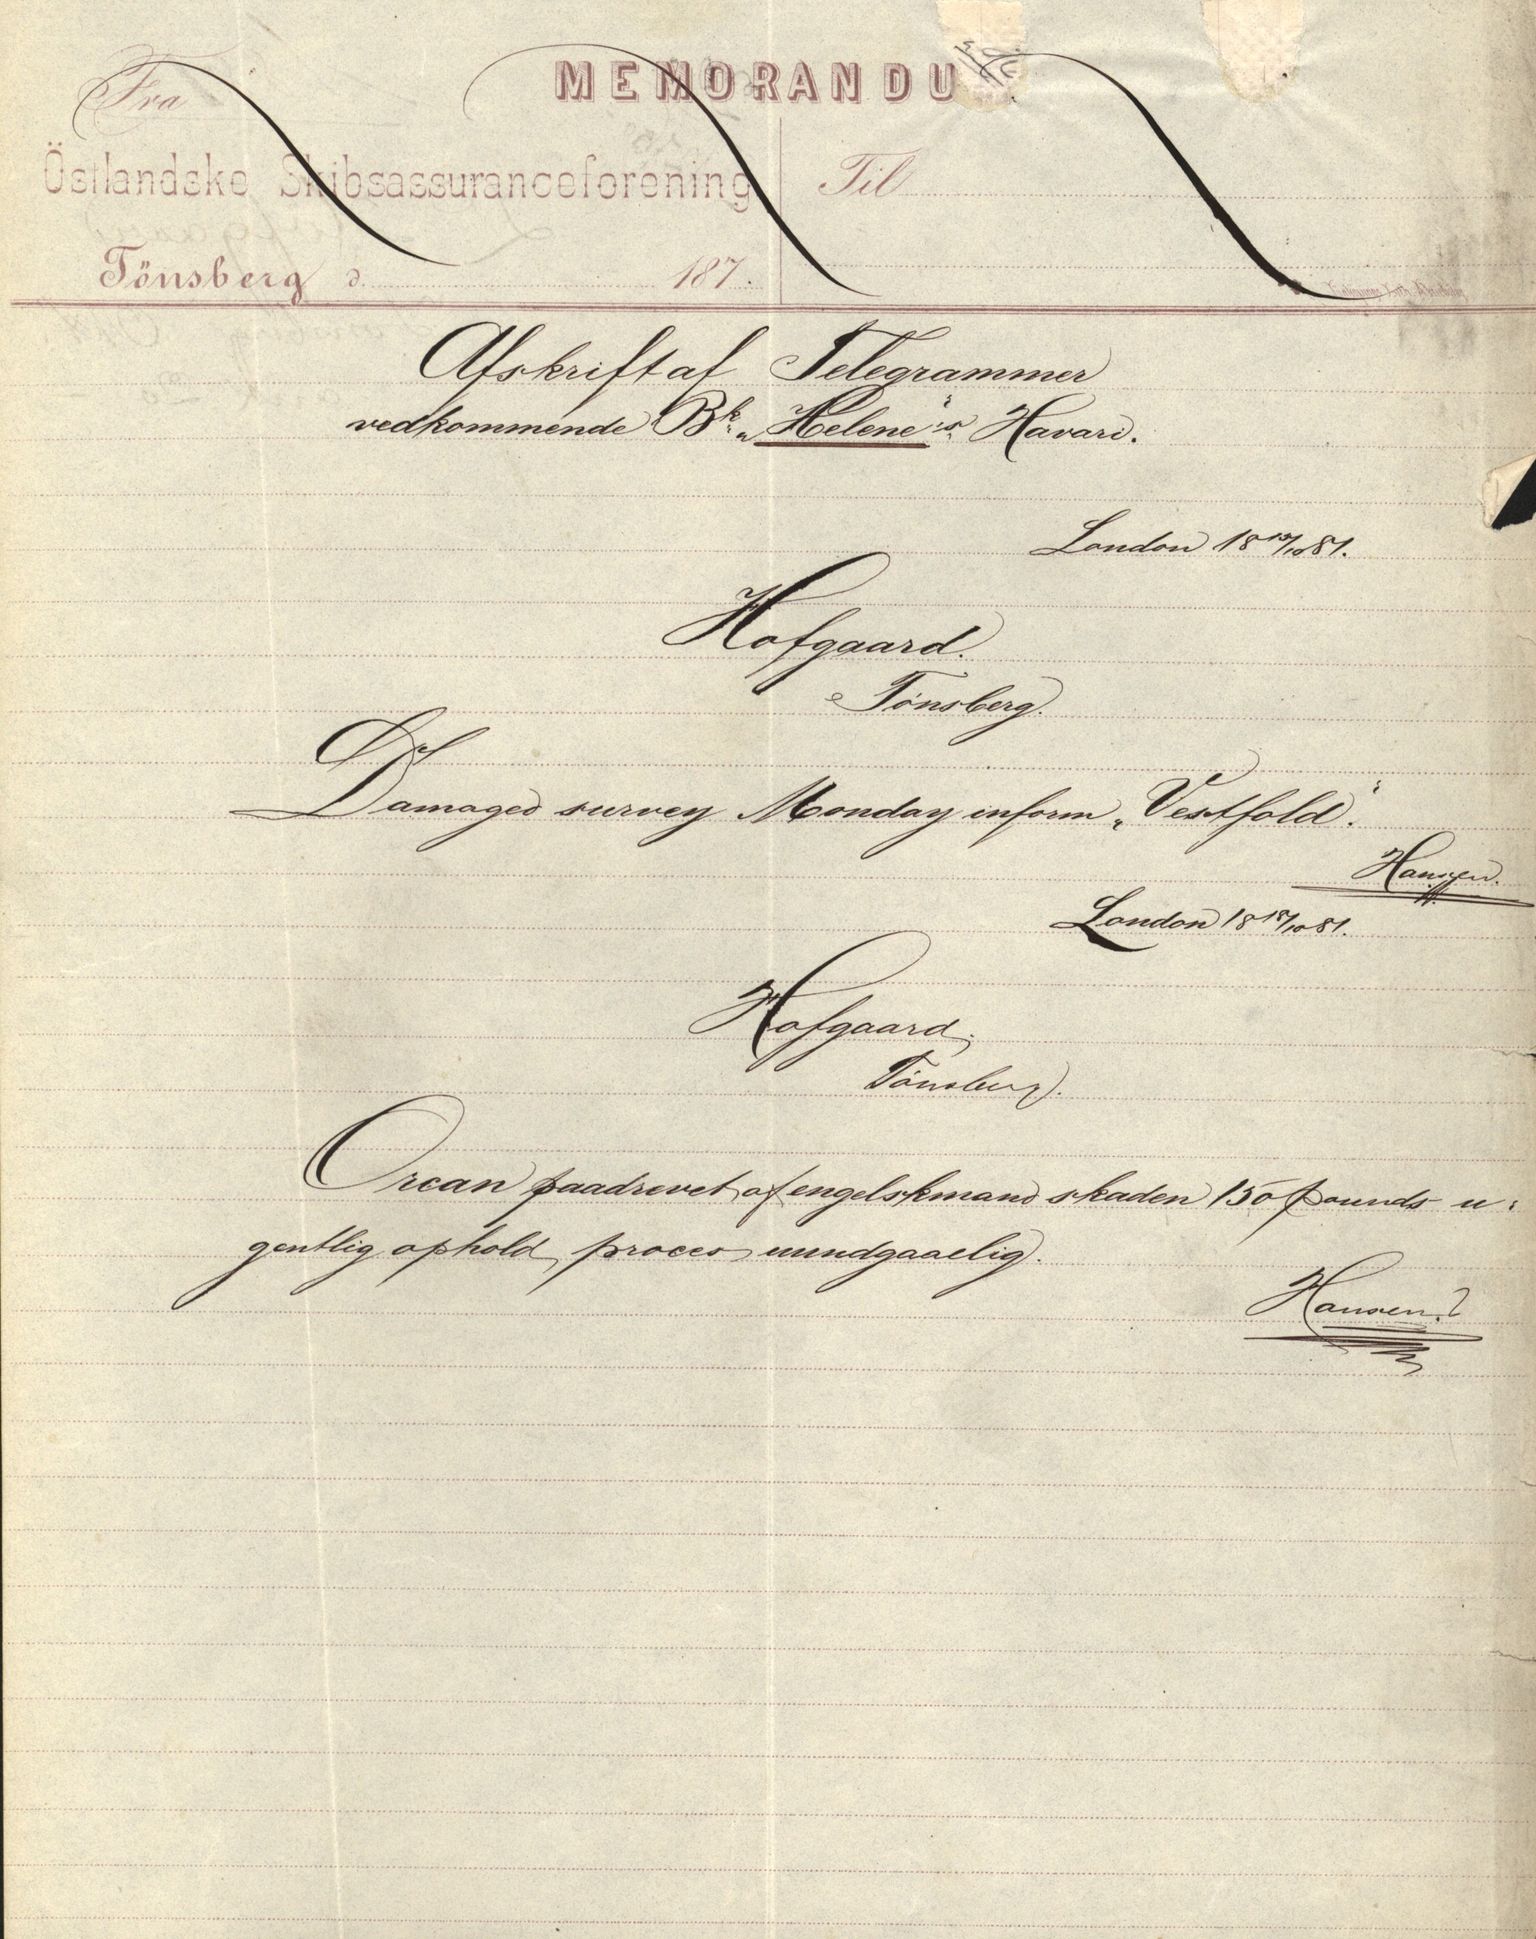 MEMORANDU
Fra
Östlandske Skibsassuranceforening
Til
Tönsberg d. 187.
Afskrift af Telegrammer
vedkommende Bk. „Helene"'s Havari.
London 18 15/10 81.
Hofgaard.
Tønsberg.
Damaged survey Monday inform „Vestfold".
Hansen.
London 18 18/10 81.
Hofgaard,
Tønsberg.
Orcan paadrevet af engelskmand skaden 150 pounds u-
gentlig ophold, proces uundgaaelig.
Hansen.